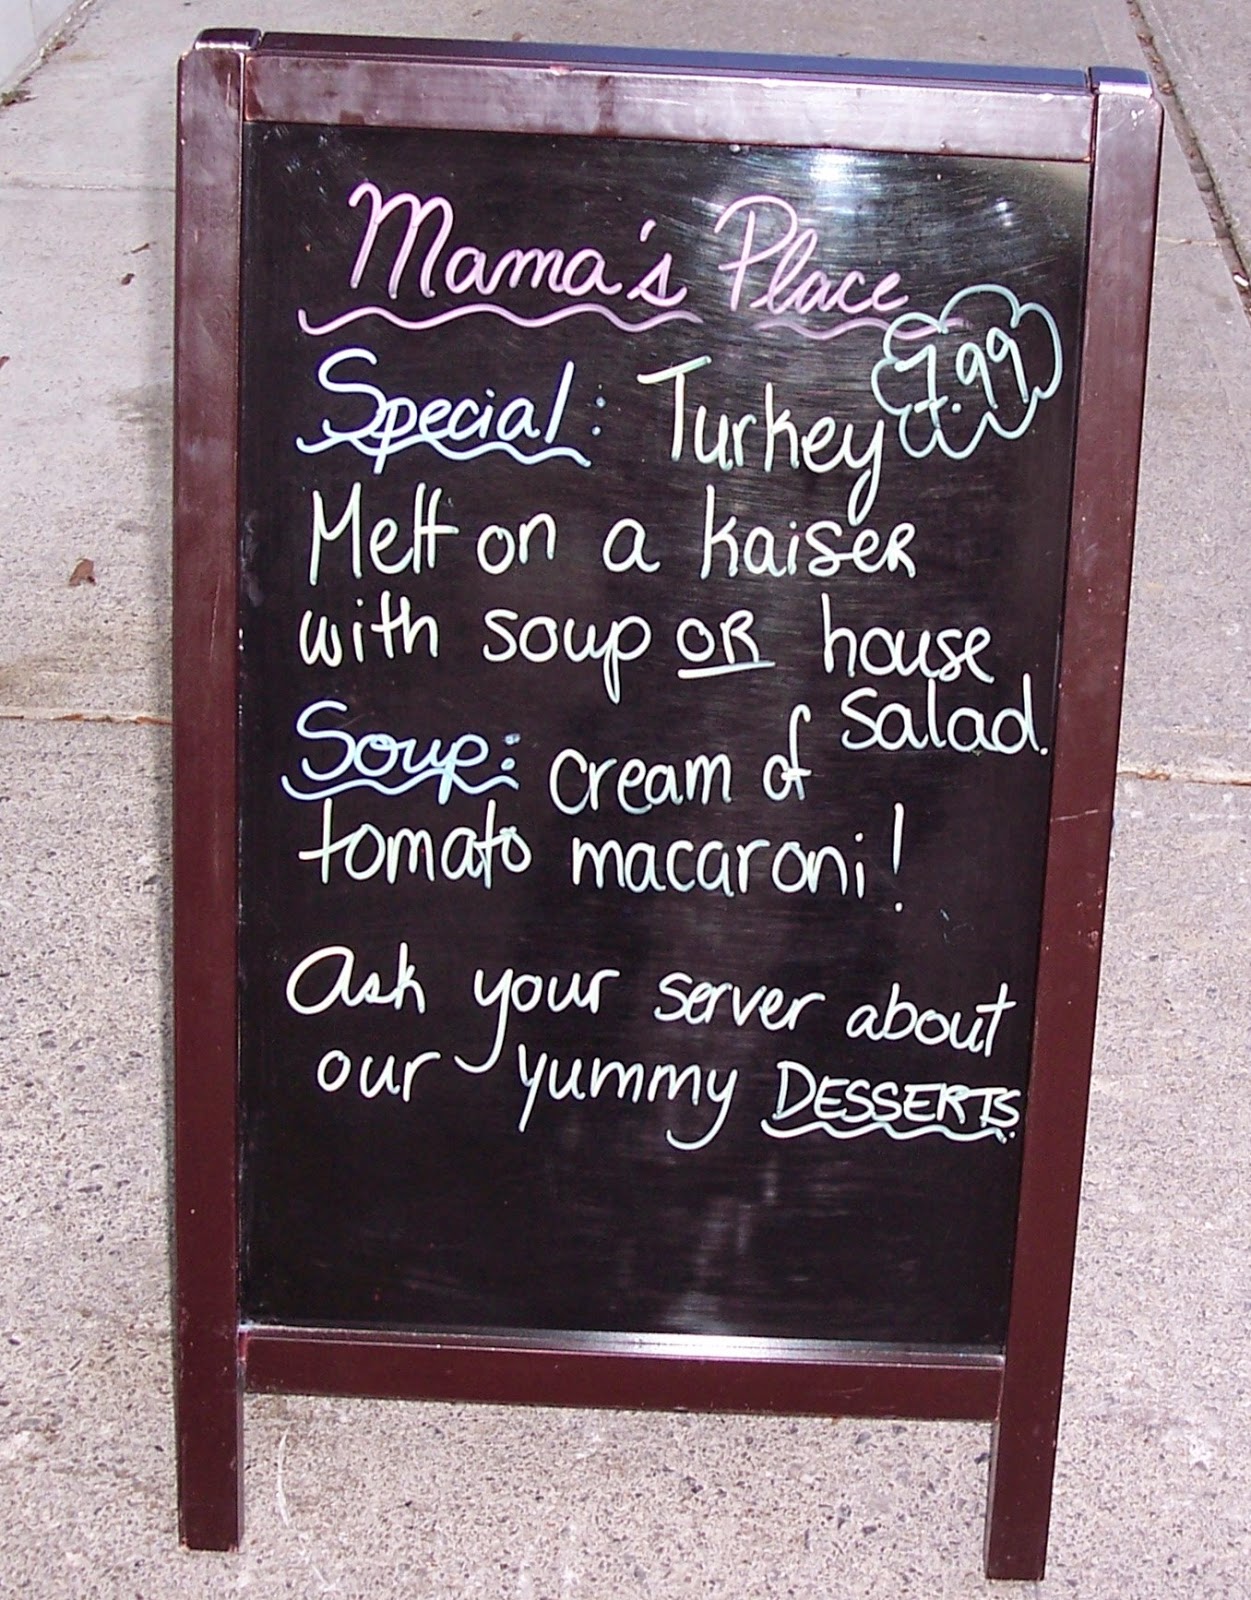 Mama's Place
Special: Turkey 7.99
Melt on a kaiser
with soup OR house
salad.
Soup: cream of
tomato macaroni!
Ask your server about
our yummy DESSERTS.